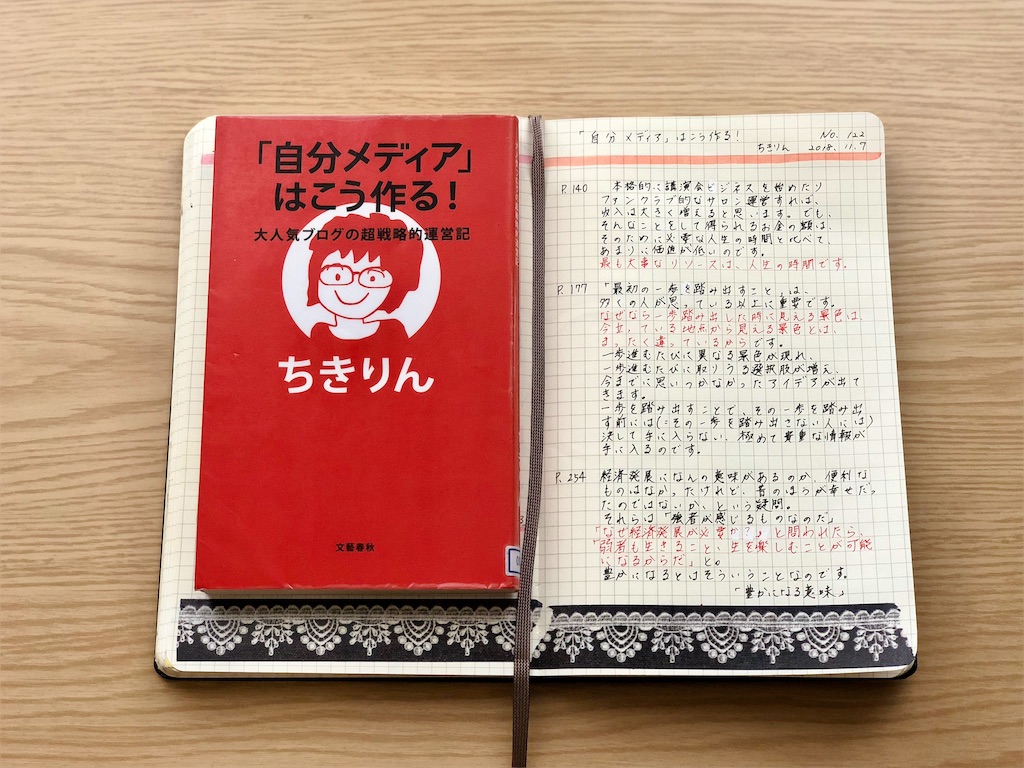 「自分メディア」
はこう作る!
大人気ブログの超戦略的運営記
ちきりん
文藝春秋
「自分メディア」はこう作る! NO. 122
ちきりん 2018. 11. 7
P. 140 本格的に講演会ビジネスを始めたり
ファンクラブ的なサロン運営すれば、
収入は大きく増えると思います。でも、
そんなことをして得られるお金の額は、
そのために必要な人生の時間と比べて、
あまりに価値が低いのです。
最も大事なリソースは、人生の時間です。
P. 177 「最初の一歩を踏み出すこと」は、
多くの人が思っている以上に重要です。
なぜなら一歩踏み出した時に見える景色は、
今立っている地点から見える景色とは、
まったく違っているからです。
一歩進むたびに異なる景色が現れ、
一歩進むたびに取りうる選択肢が増え、
今までに思いつかなかったアイデアが出て
きます。
一歩を踏み出すことで、その一歩を踏み出
す前には(=その一歩を踏み出さない人には)
決して手に入らない、極めて貴重な情報が
手に入るのです。
P. 254 経済発展になんの意味があるのか、便利な
ものはなかったけれど、昔のほうが幸せだっ
たのではないか、という疑問。
それらは「強者が感じるものなのだ」
「なぜ経済発展が必要か?」と問われたら、
「弱者も生きること、生を楽しむことが可能
になるからだ」と。
豊かになるとはそういうことなのです。
「豊かになる意味」